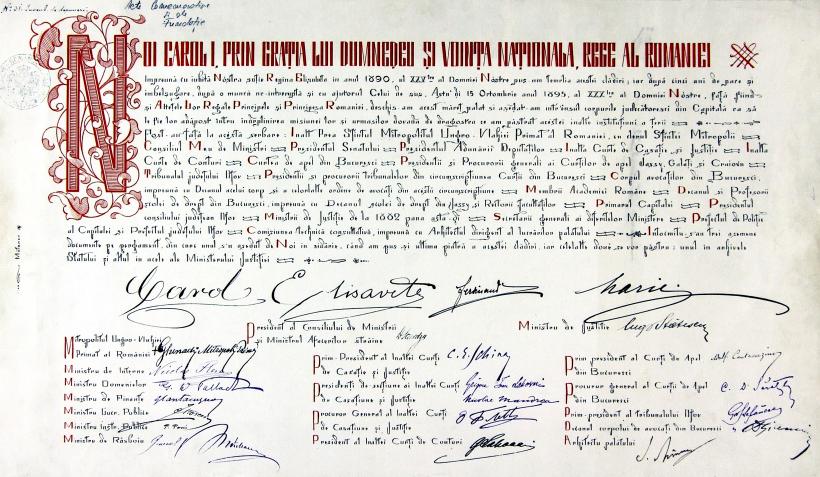 Act Comemorativ
și de
Fundație
NOI CAROL I, PRIN GRAȚIA LUI DUMNEDEU ȘI VOINȚA NAȚIONALA, REGE AL ROMANIEI
Împreună cu iubita Nostra soție Regina Elisabeta in anul 1890, al XXVlea al Domniei Nostre pus-am temelia acestei clădiri; iar după cinci ani de pace și
imbelșugare, după o muncă ne-intreruptă și cu ajutorul Celui de sus, Astă-di 15 Octombrie anul 1895, al XXXlea al Domniei Nostre, față fiind
și Altețele Lor Regale Principele și Principesa Romaniei, deschis-am acest măreț palat și așezat-am intr'insul corpurile judecătoresci din Capitala ca să
le fie lor adăpost intru indeplinirea misiunei lor și urmașilor dovadă de dragostea ce am păstrat acestei inalte instituțiuni a țerii
Fost-au față la acestă serbare: Inalt Prea Sfintul Mitropolitul Ungro-Vlahiei Primat al Romaniei, cu clerul Sfintei Mitropolii
Consiliul Meu de Miniștri Președintul Senatului Președintul Adunării Deputaților Inalta Curte de Casație și Justiție Inalta
Curte de Conturi Curtea de apel din Bucuresci Președinții și Procurorii generali ai Curților de apel Iassy, Galați și Craiova
Tribunalul județului Ilfov Președinții și procurorii tribunalelor din circumscripțiunea Curții din Bucuresci Corpul avocaților din Bucuresci,
impreună cu Decanul acelui corp și a celorlalte ordine de avocați din acestă circumscripțiune Membrii Academiei Romane Decanul și Profesorii
școlei de drept din Bucuresci, impreună cu Decanul școlei de drept din Iassy și Rectorii facultăților Primarul Capitalei Președintul
consiliului județean Ilfov Miniștrii de Justiție de la 1862 pana astă-di Secretarii generali ai diferitelor Ministere Prefectul de Poliție
al Capitalei și Prefectul județului Ilfov Comisiunea technică consultativă, impreună cu Arhitectul dirigent al lucrărilor palatului Intocmitu-s'au trei asemenea
documente pe pergament, din cari unul s'a așezat de Noi in zidărie, când am pus și ultima piatră a acestei clădiri, iar celelalte două se vor păstra: unul in arhivele
Statului și altul in acele ale Ministerului Justiției
Carol Elisaveta Ferdinand Marie
Mitropolitul Ungro-Vlahiei
Primat al Romaniei
Ministru de Interne
Ministru Domenielor
Ministru de Finanțe
Ministru Lucr. Publice
Ministru Instr. Publice
Ministru de Răsboiu
Președintul al Consiliului de Miniștri
și Ministrul Afacerilor straine
Prim-Președintul al Inaltei Curți
de Casațiune și Justiție
Președinții de secțiune ai Inaltei Curți
de Casațiune și Justiție
Procuror General al Inaltei Curți
de Casațiune și Justiție
Președintul al Inaltei Curți de Conturi
Ministru de Justiție
Prim președintul al Curții de Apel
din Bucuresci
Procuror general al Curții de Apel
din Bucuresci
Prim-președintul al tribunalului Ilfov
Decanul corpului de avocați din Bucuresci
Arhitectu palatului